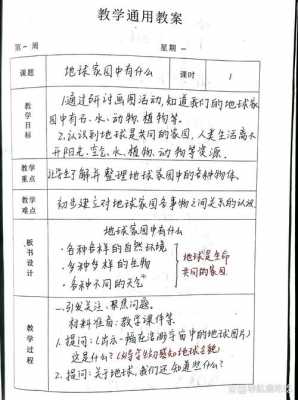 教学通用教案
第一周 星期一
课题 地球家园中有什么 课时 1
教学目标
1.通过研讨画图活动,知道我们的地球家
园中有石、水、动物、植物等。
2.认识到地球是共同的家园,人类生活离不
开阳光、空气、水、植物、动物等资源。
教学重点
让学生了解并整理地球家园中的各种物体。
教学难点
初步建立对地球家园各事物之间关系的认识。
板书设计
地球家园中有什么
·各种各样的自然环境
·多种多样的生物
·各种不同的天气
地球是生命
共同的家园
教学过程
一、引发关注,聚焦问题。
材料准备:教学课件等。
1.提问:(出示一幅在浩瀚宇宙中的地球图片)
这是什么?(给学生初感知地球全貌
2.提问:关于地球,我们还知道些什么?